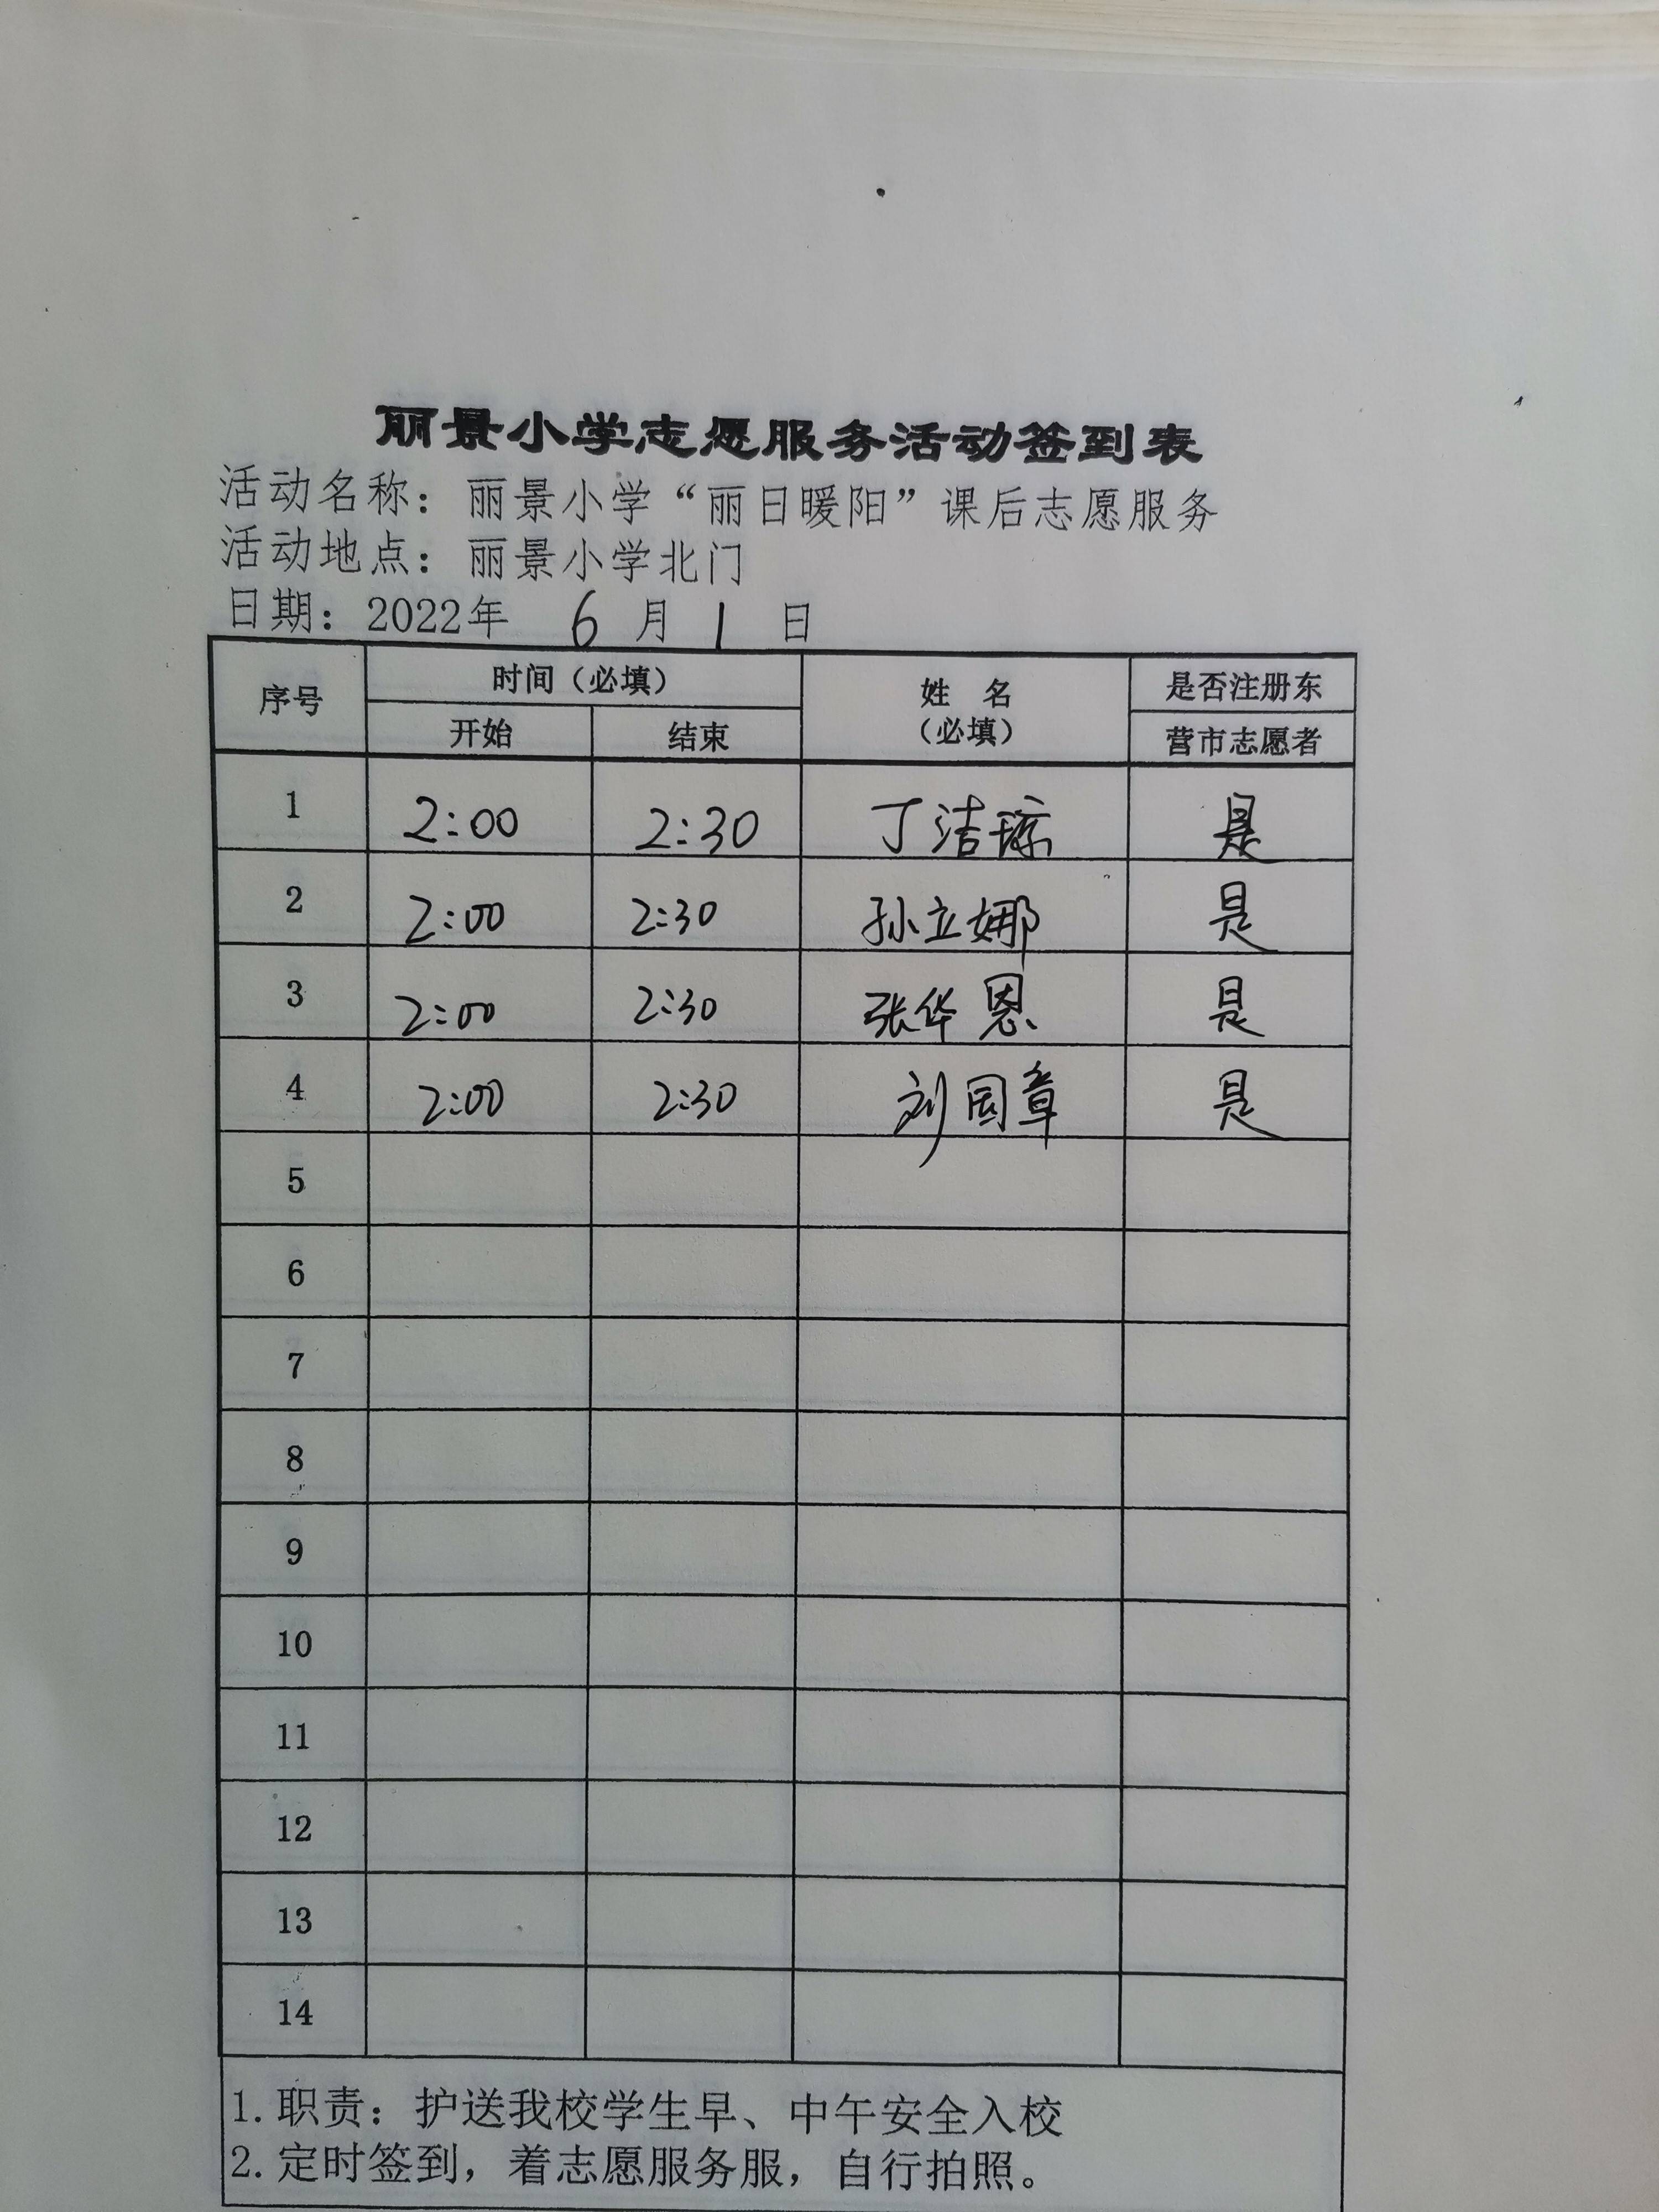 丽景小学志愿服务活动签到表
活动名称：丽景小学“丽日暖阳”课后志愿服务
活动地点：丽景小学北门
日期：2022年 6 月 1 日
序号 时间（必填） 姓 名（必填） 是否注册东营市志愿者
开始 结束
1 2:00 2:30 丁洁琼 是
2 2:00 2:30 孙立娜 是
3 2:00 2:30 张华恩 是
4 2:00 2:30 刘国章 是
5
6
7
8
9
10
11
12
13
14
1.职责：护送我校学生早、中午安全入校
2.定时签到，着志愿服务服，自行拍照。